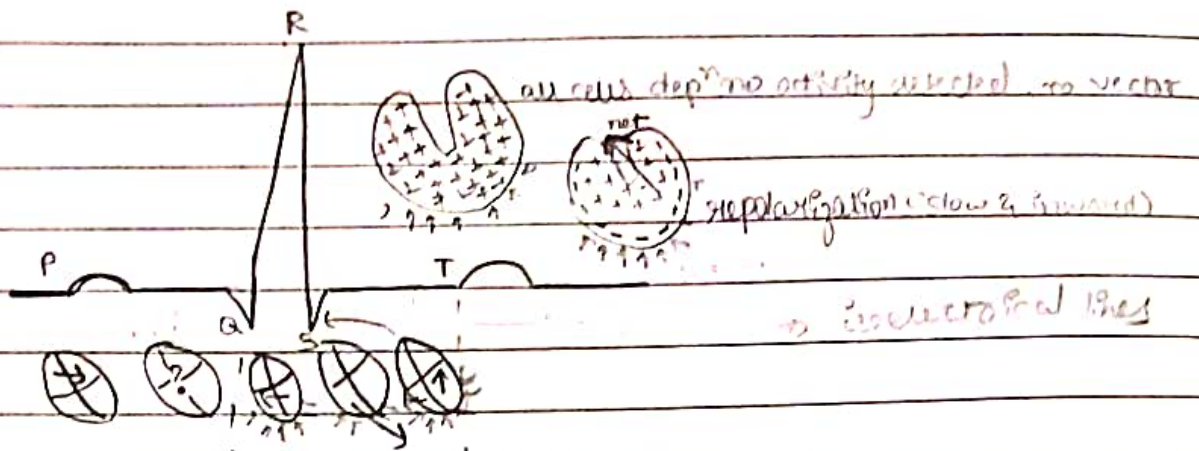 R
all cells depⁿ no activity detected no vector
net
repolarization (slow & inward)
P
T
Q
S
→ isoelectrical lines